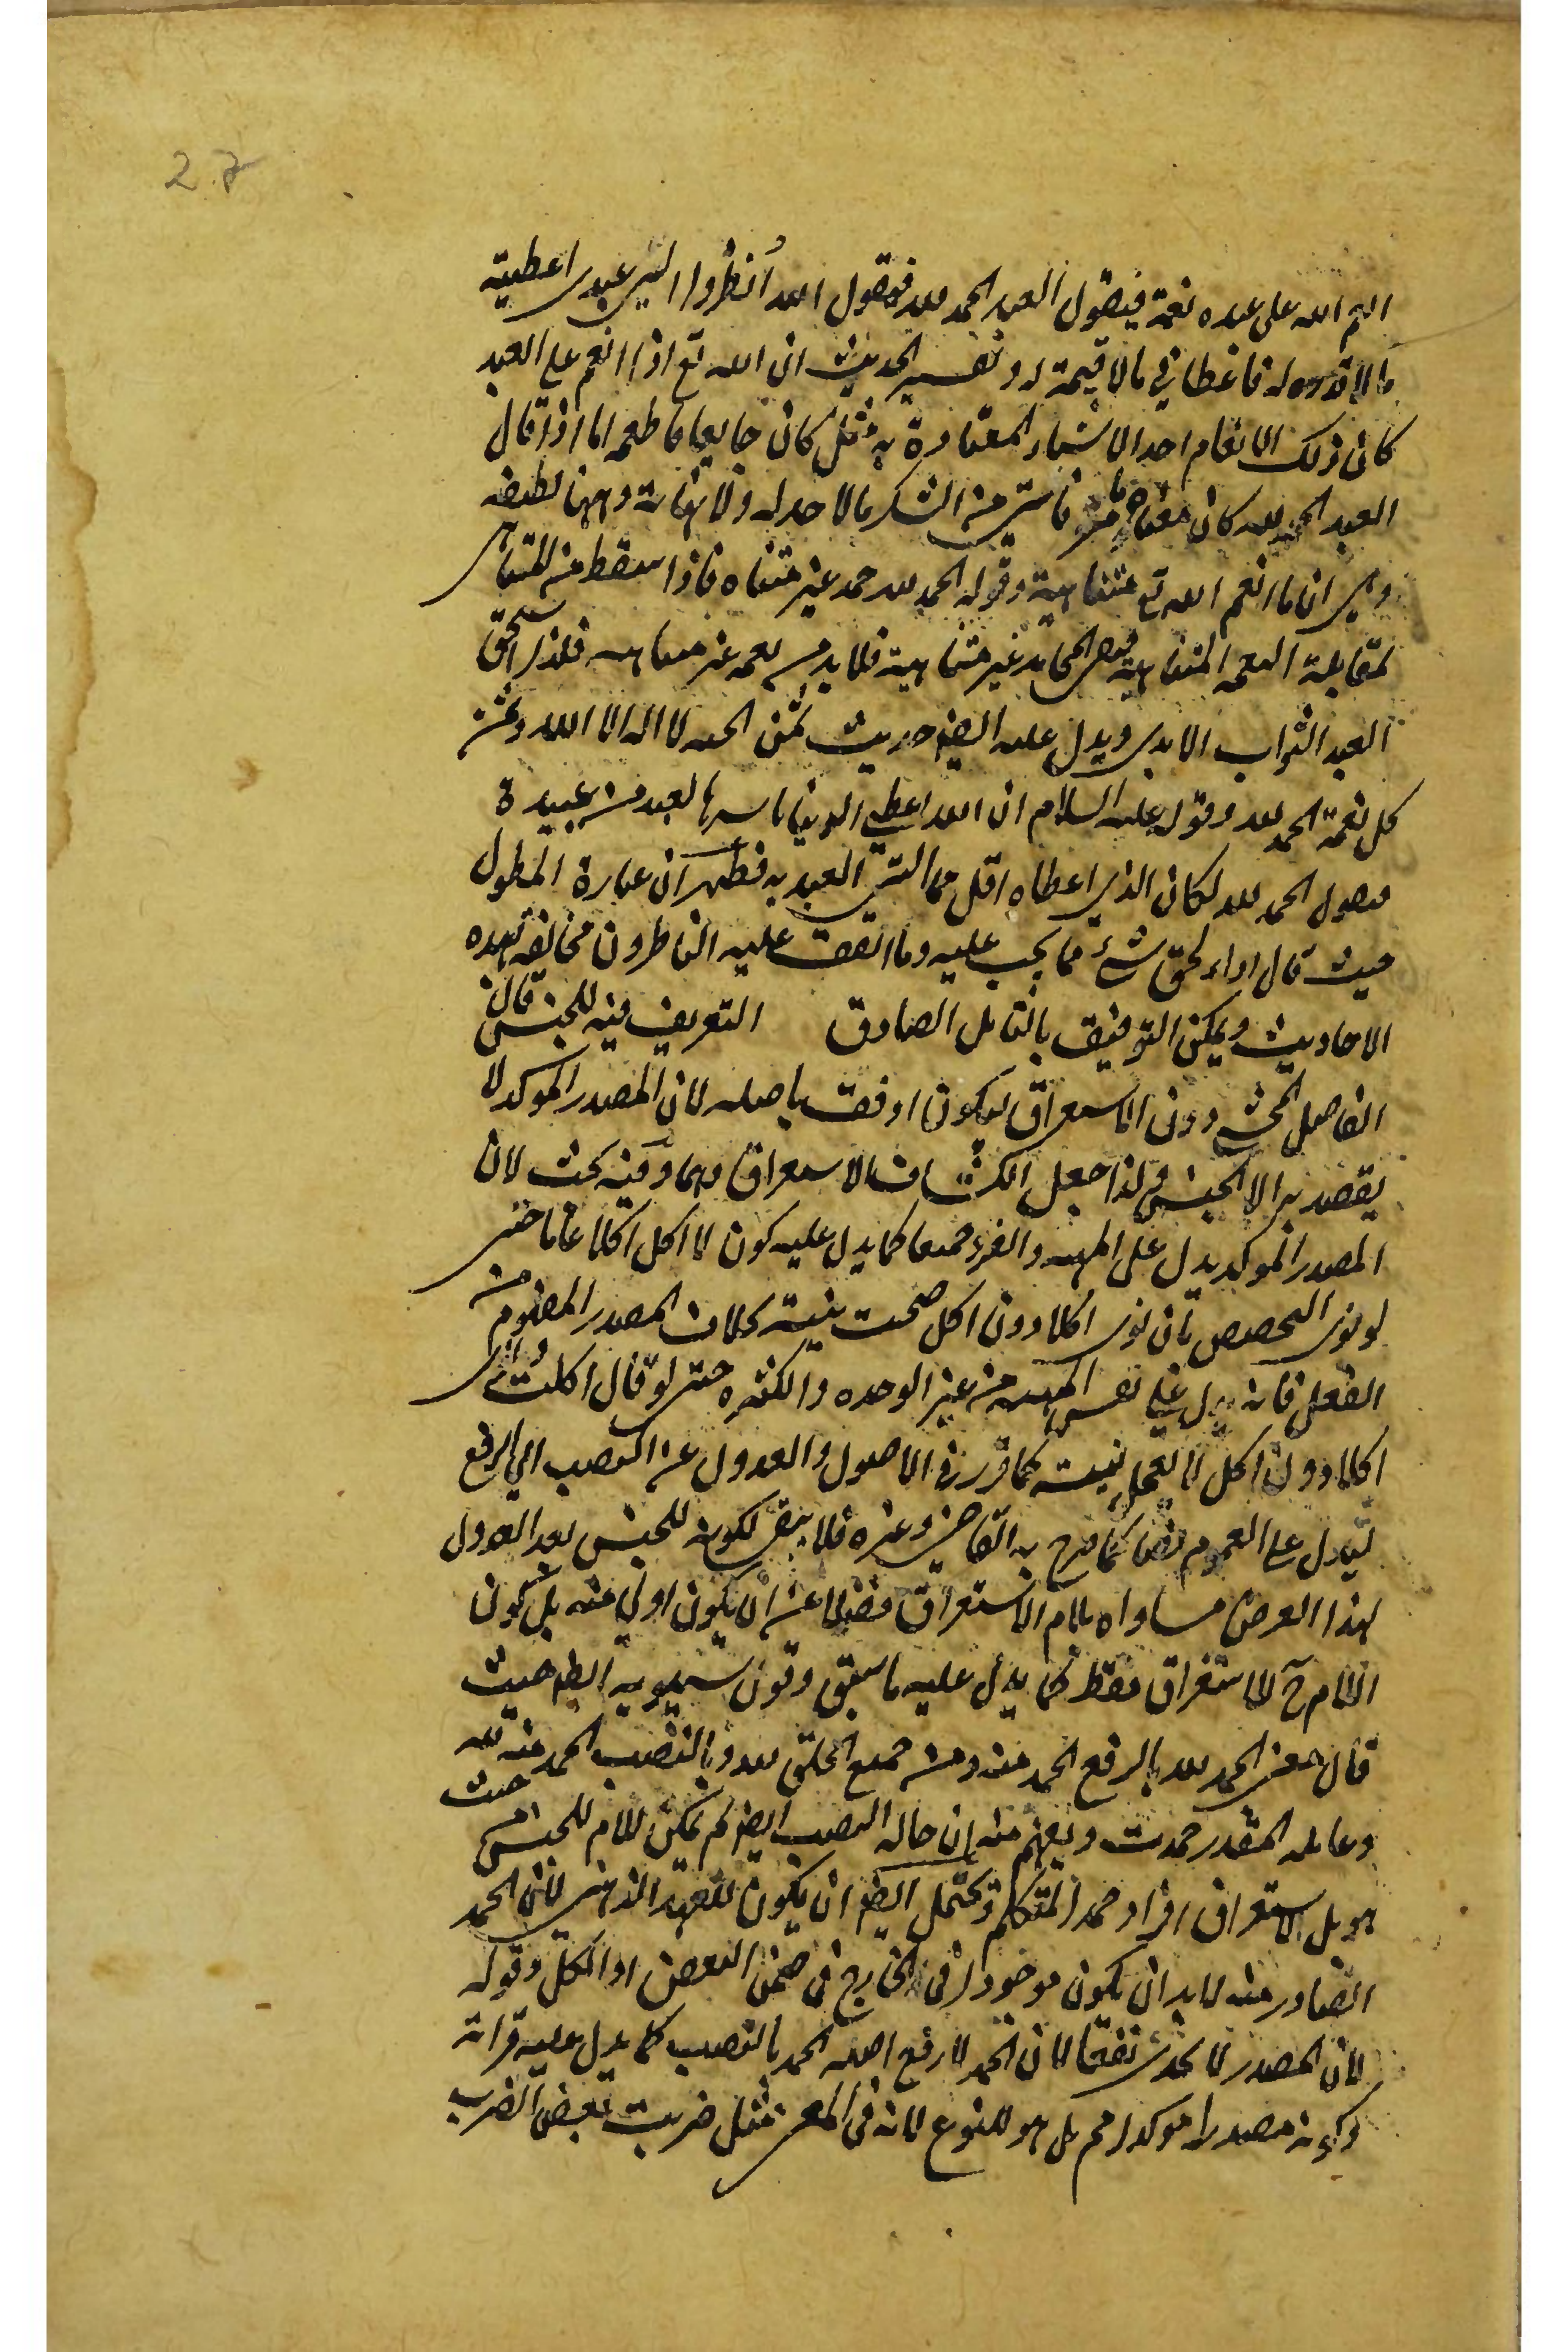 27
انعم الله على عبده نعمة فيقول العبد الحمد لله فيقول الله أنظروا الى عبدى اعطيته
ما لا قدر له فاعطانى ما لا قيمة له وتفسير الحديث ان الله تع اذا انعم على العبد
كان ذلك الانعام احد الاشياء المعتادة به مثل كان جايعا فاطعمه اما اذا قال
العبد الحمد لله كان معناه من الشكر ما لا حد له ولا نهاية وههنا لطيفه
وهى ان ما انعم الله تع متناهية وقوله الحمد لله حمد غير متناه فاذا سقط من المتناهى
لمقابلة النعمه المتناهية المحامد غير متناهية فلا بد من نعمه غير متناهيه فلذا استحق
العبد الثواب الابدى ويدل عليه ايضا حديث ثمن الجنه لا اله الا الله وثمن
كل نعمة الحمد لله وقوله عليه السلام ان الله اعطى الدنيا باسرها لعبد من عبيده
فيقول الحمد لله لكان الذى اعطاه اقل مما اتى العبد به فظهر ان عبارة المطول
حيث قال اداء لحق شئ مما يجب عليه وما اتفق عليه الناظرون مخالفة لهذه
الاحاديث ويمكن التوفيق بالتامل الصادق التعريف فيه للجنس قال
الفاضل المحشى دون الاستغراق ليكون اوفق باصله لان المصدر الموكد لا
يقصد به الا الجنس ولذا جعل الكشاف الاستغراق وهما وفيه بحث لان
المصدر الموكد يدل على المهيه والفرد جميعا كما يدل عليه كون لا اكل اكلا عاما حتى
لو نوى التخصيص بان نوى اكلا دون اكل صحت نيته بخلاف المصدر المفهوم من
الفعل فانه يدل على نفس المهيه من غير الوحده والكثره حتى لو قال اكلت ونوى
اكلا دون اكل لا تعمل نيته كما قرر فى الاصول والعدول عن النصب الى الرفع
ليدل على العموم نصا كما صرح به القاضى وغيره فلا يبقى لكونه للجنس بعد العدول
لهذا الغرض مساواه بلام الاستغراق فضلا عن ان يكون اولى منه بل كون
اللام ح للاستغراق فقط كما يدل عليه ما سبق وقول سيبويه ايضا حيث
قال معنى الحمد لله بالرفع الحمد منه ومن جميع الخلق لله وبالنصب الحمد منه لله
وعامله المقدر حمدت ويفهم منه ان حاله النصب ايضا لم يكن للام للجنس من حيث
هو بل لاستغراق افراد حمد المتكلم ويحتمل ايضا ان يكون للعهد الذهنى لان الحمد
الصادر منه لا بد ان يكون موجودا فى الخارج فى ضمن البعض او الكل وقوله
لان المصدر لا لان الحمد لله رفع اصله الحمد بالنصب كما يدل عليه قراءة
وكونه مصدرا موكدا مم بل هو للنوع لانه فى المعنى مثل ضربت بعض الضرب